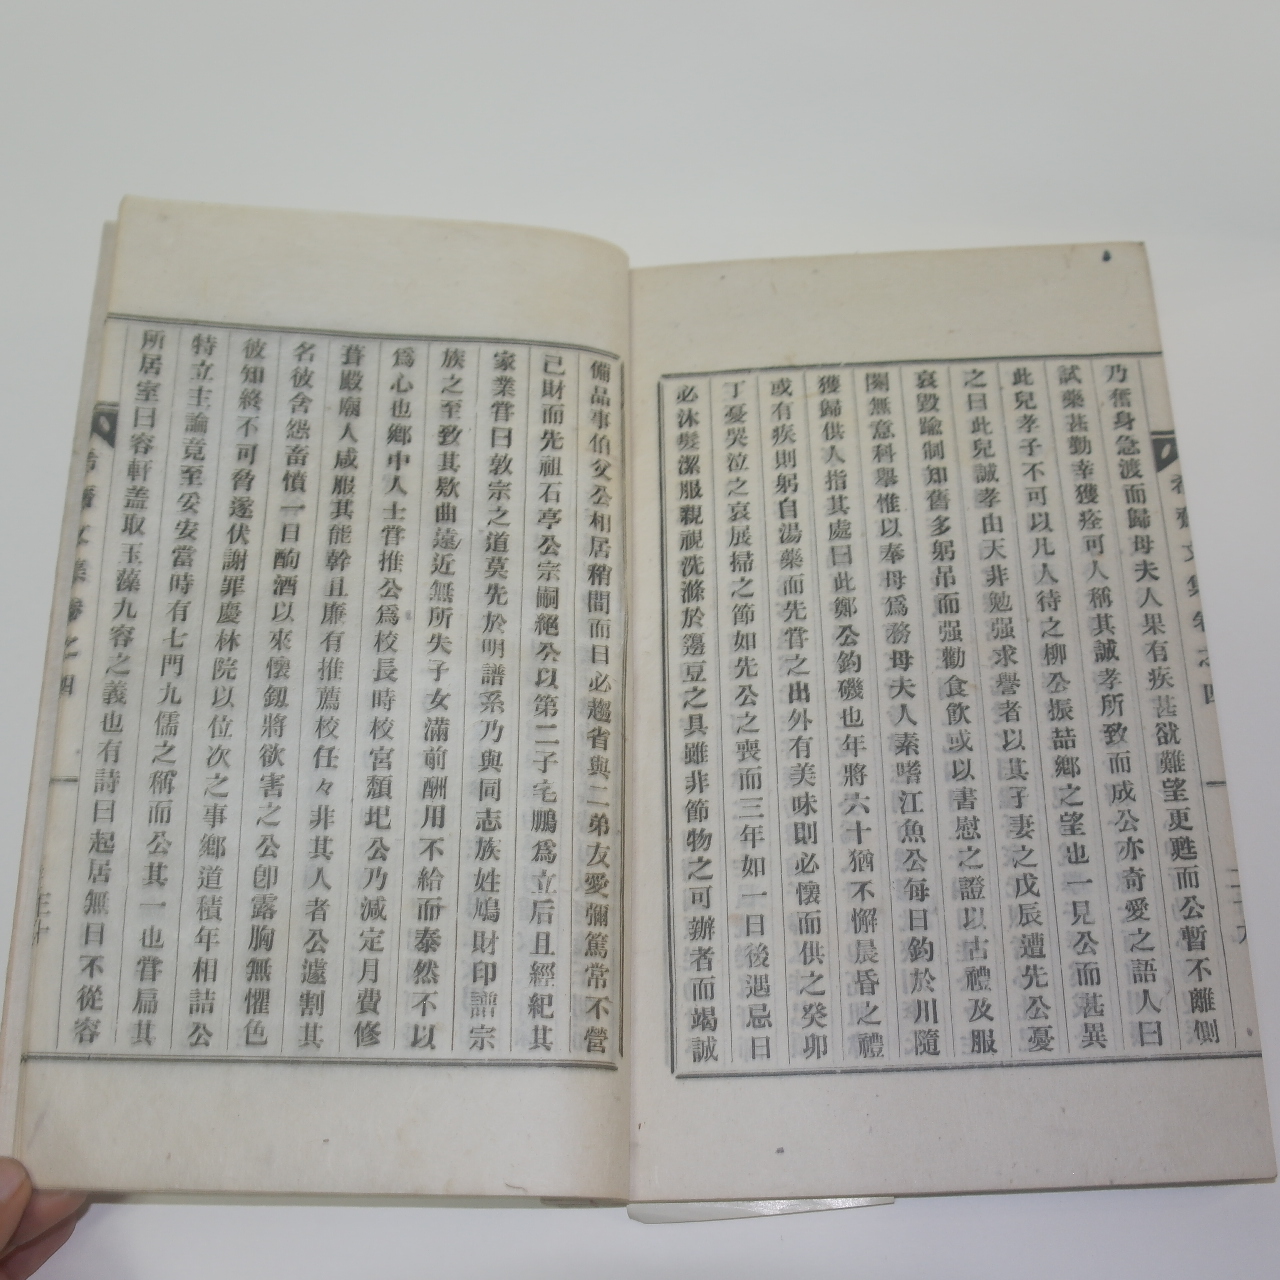 乃奮身急渡而歸母夫人果有疾甚欲難望更甦而公暫不離側
試藥甚勤幸獲痊可人稱其誠孝所致而成公亦奇愛之語人曰
此兒孝子不可以凡人待之柳公振喆鄉之望也一見公而甚異
之曰此兒誠孝由天非勉强求譽者以其子妻之戊辰遭先公憂
哀毀踰制知舊多躬吊而强勸食飮或以書慰之證以古禮及服
闋無意科擧惟以奉母爲務母夫人素嗜江魚公每日釣於川隨
獲歸供人指其處曰此鄭公釣磯也年將六十猶不懈晨昏之禮
或有疾則躬自湯藥而先甞之出外有美味則必懷而供之癸卯
丁憂哭泣之哀展掃之節如先公之喪而三年如一日後遇忌日
必沐髮潔服親視洗滌於籩豆之具雖非節物之可辦者而竭誠
備品事伯父公相居稍間而日必趨省與二弟友愛彌篤常不營
己財而先祖石亭公宗嗣絕公以第二子宅鵬爲立后且經紀其
家業甞曰敦宗之道莫先於明譜系乃與同志族姓鳩財印譜宗
族之至致其欵曲遠近無所失子女滿前酬用不給而泰然不以
爲心也鄉中人士甞推公爲校長時校宮頹圯公乃減定月費修
葺殿廟人咸服其能幹且廉有推薦校任々非其人者公遽割其
名彼舍怨畜憤一日酗酒以來懷釼將欲害之公卽露胸無懼色
彼知終不可脅遂伏謝罪慶林院以位次之事鄉道積年相詰公
特立主論竟至妥安當時有七門九儒之稱而公其一也甞扁其
所居室曰容軒盖取玉藻九容之義也有詩曰起居無日不從容
文集卷之四
三十